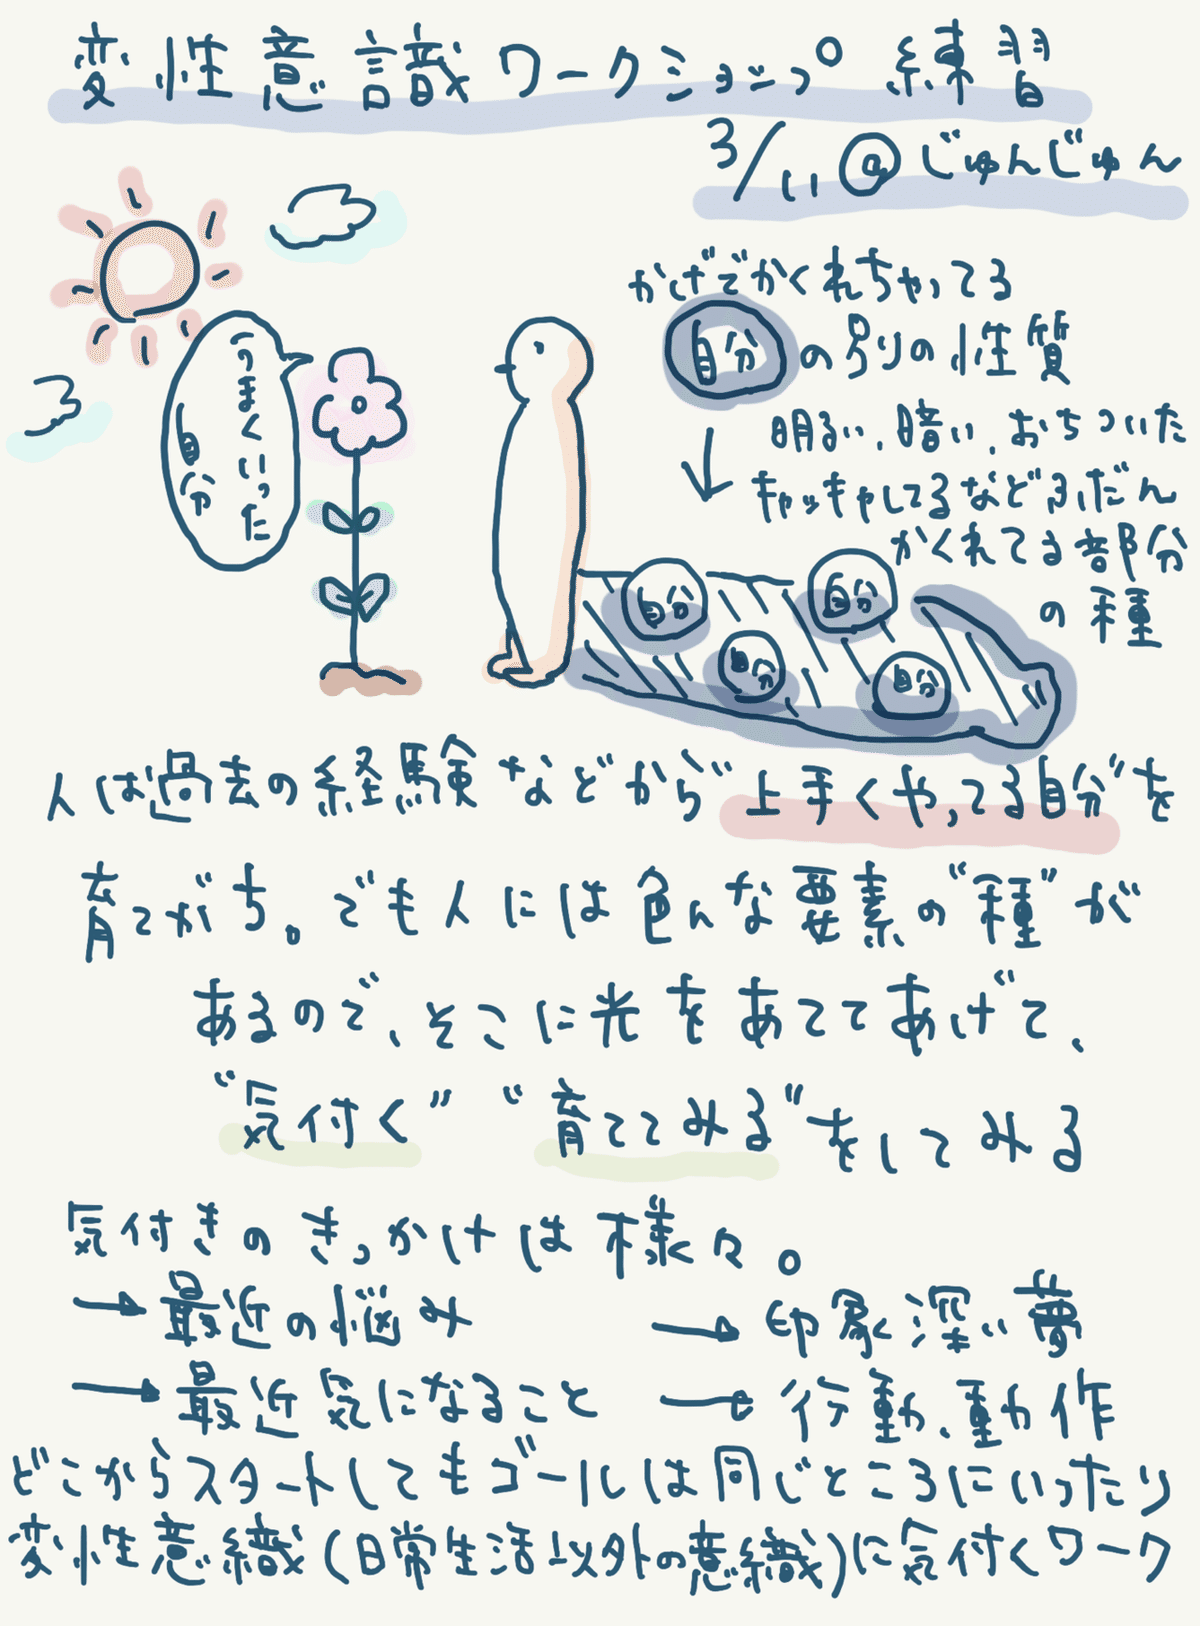 変性意識ワークショップ 練習
3/11 @じゅんじゅん
うまくいった
自分
かげでかくれちゃってる
自分の別の性質
明るい、暗い、おちついた
キャッキャしてるなどふだん
かくれてる部分
の種
自分
自分
自分
自分
人は過去の経験などから"上手くやってる自分"を
育てがち。でも人には色んな要素の"種"が
あるので、そこに光をあててあげて、
"気付く" "育ててみる"をしてみる
気付きのきっかけは様々。
→最近の悩み →印象深い夢
→最近気になること →行動、動作
どこからスタートしてもゴールは同じところにいったり
変性意織(日常生活以外の意織)に気付くワーク